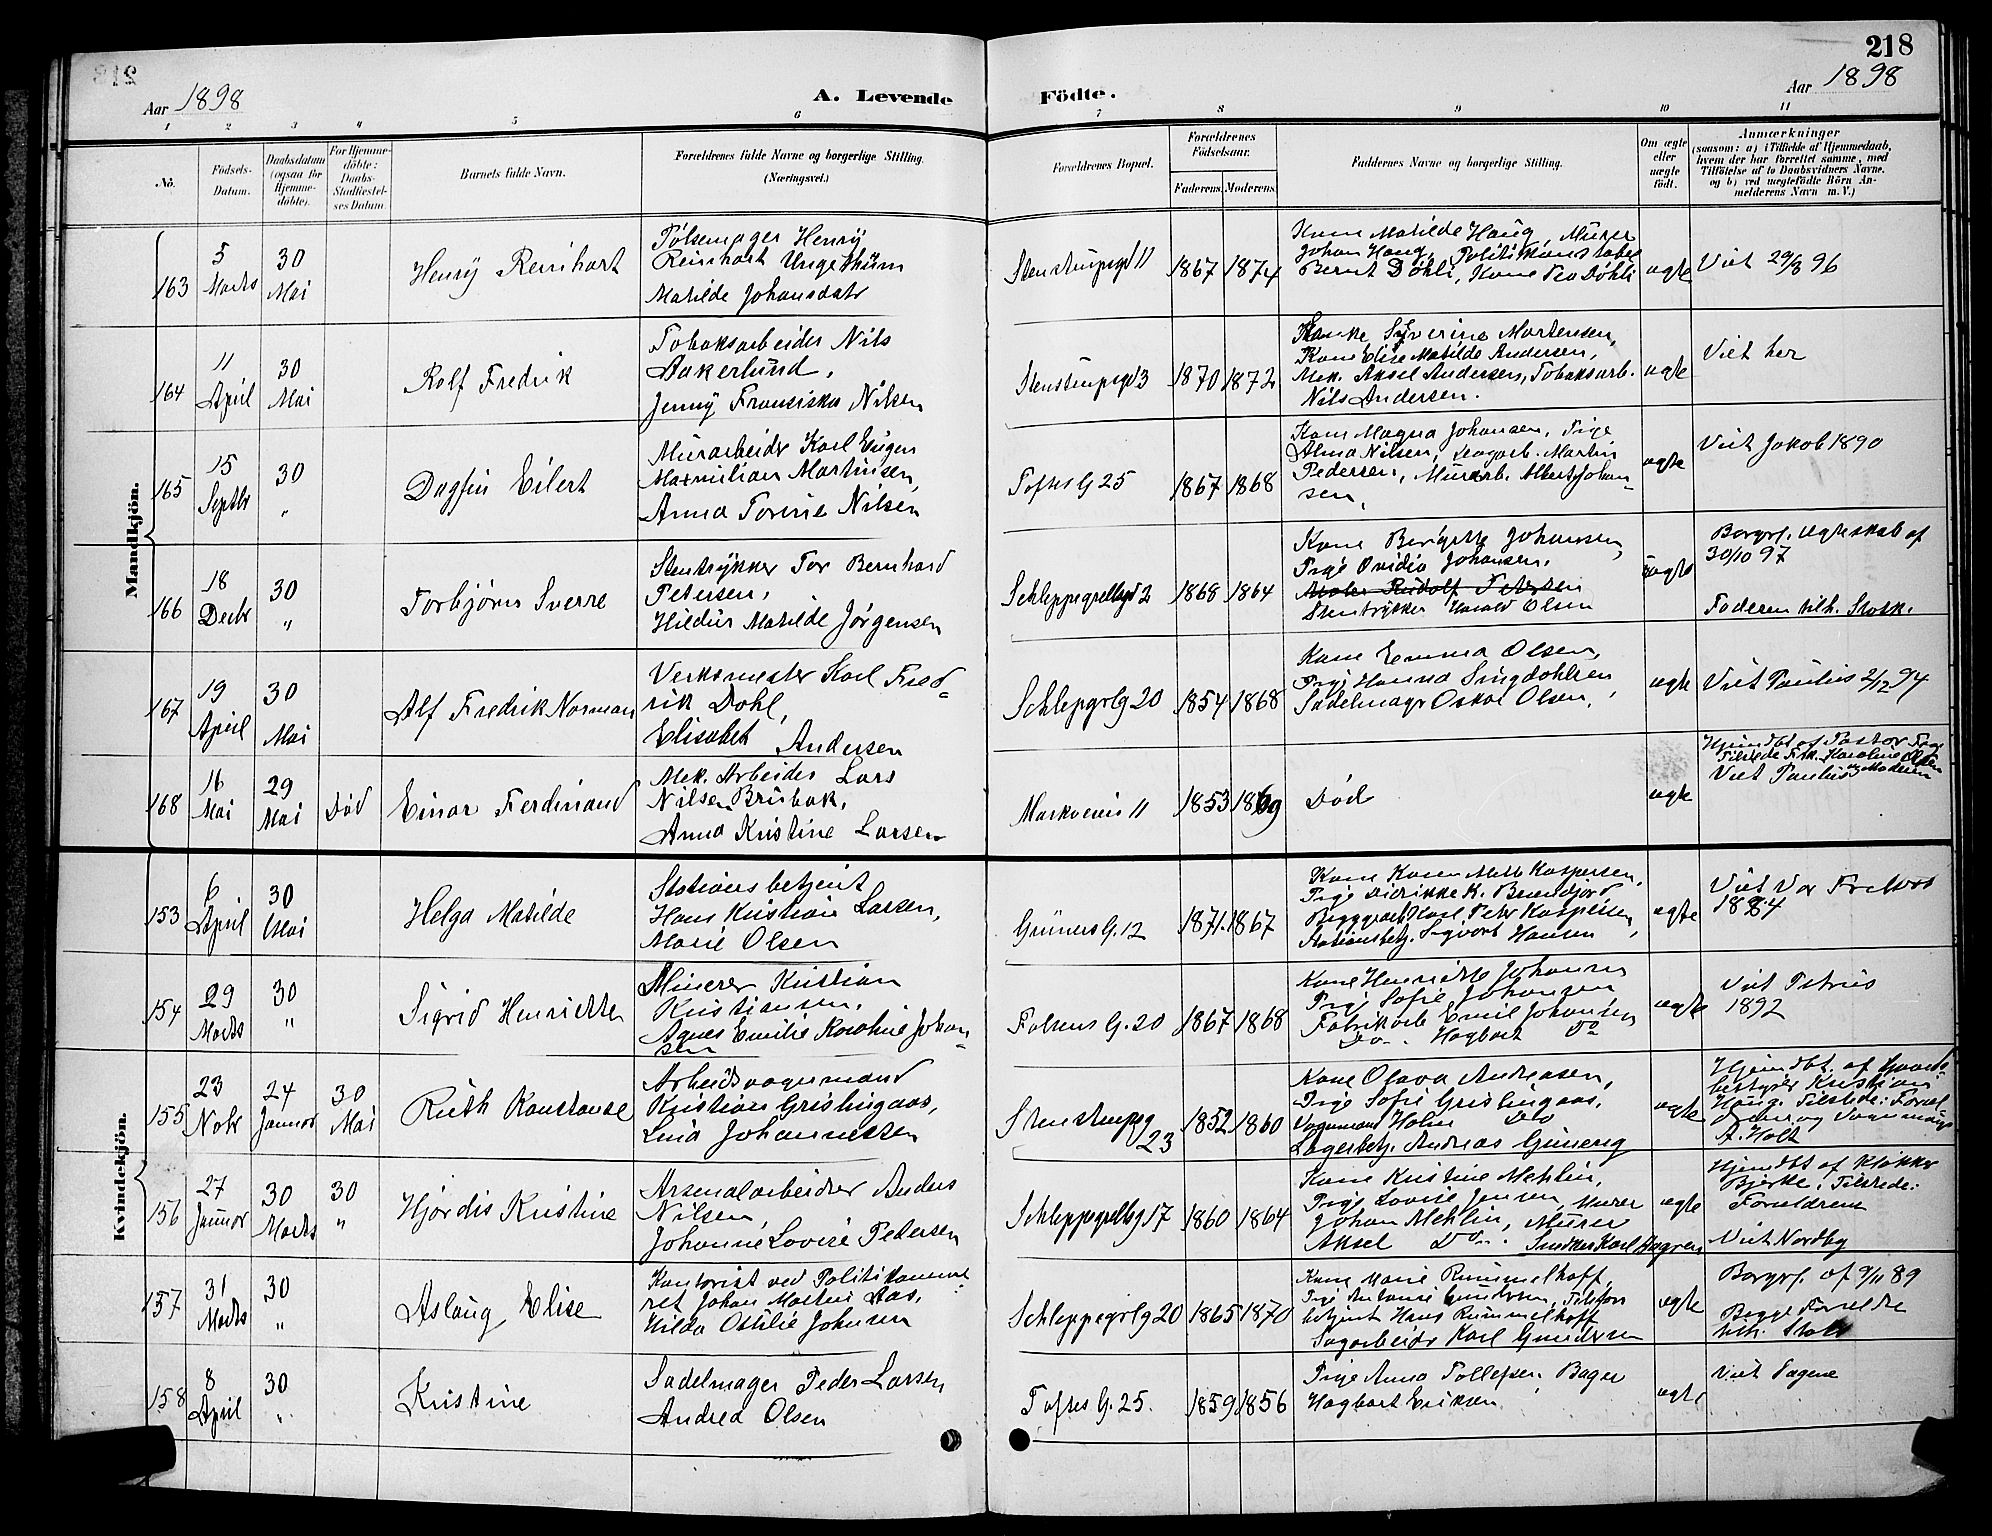 218
Aar 1898
A. Levende Födte.
Aar 1898
1 2 3 4 5 6 7 8 9 10 11
No.
Födsels-Datum.
Daabsdatum (ogsaa for Hjemme-döbte).
For Hjemme-döbte: Daabs-Stadfæstel-ses Datum.
Barnets fulde Navn.
Forældrenes fulde Navne og borgerlige Stilling.
(Næringsvei.)
Forældrenes Bopæl.
Forældrenes Födselsaar.
Faderens. Moderens.
Faddernes Navne og borgerlige Stilling.
Om ægte eller uægte födt.
Anmærkninger
(saasom: a) i Tilfælde af Hjemmedaab,
hvem der har forrettet samme, med
Tilföielse af to Daabsvidners Navne.
og b) ved uægtefödte Börn An-
melderens Navn m. V.)
Mandkjön.
163
5 Marts
30 Mai
Henry Reinhart
Pølsemager Henry
Reinhart Ungethüm
Matilde Johansdatr
Stenstrupsgd 11
1867 1874
Kone Matilde Haug, Murer
Johan Haug, Politikonstabel
Bernt Døhli, Kone Pea Døhli
ægte
Viet 29/8 96
164
11 April
30 Mai
Rolf Fredrik
Tobaksarbeider Nils
Aakerlund,
Jenny Fransiska Nilsen
Stenstrupsgd 3
1870 1872
Enke Syverine Mortensen,
Kone Elise Matilde Andersen,
Mek. Aksel Andersen, Tobaksarb.
Nils Andersen.
ægte
Viet her
165
15 Septbr
30 "
Dagfin Eilert
Murarbeidr Karl Eugen
Maxmilian Martinisen,
Anna Torine Nilsen
Toftes G 25
1867 1868
Kone Magna Johansen, Pige
Alma Nilsen, Martin
Pedersen, Murarb. Albert Johan-
sen,
ægte
Viet Jakob 1890
166
18 Decbr
30 "
Torbjørn Sverre
Stentrykker Tor Bernhard
Petersen,
Hildur Matilde Jørgensen
Schleppegrellsgd 2
1868 1864
Kone Bergitte Johannsen,
Pige Ovidia Johansen,
Maler Rudolf Petersen
Stentrykker Harald Olsen
uægte
Borgrl. ægteskab af
30/10 97
Faderen tilh. Statsk.
167
19 April
30 Mai
Alf Fredrik Norman
Verksmester Karl Fred-
rik Dahl,
Elisabet Andersen
Schlepgrlg 20
1854 1868
Kone Emma Olsen,
Pige Hanna Singdahlsen
Sadelmagr Oskar Olsen,
ægte
Viet Paulus 2/12 94
168
16 Mai
29 Mai
Død
Einar Ferdinand
Mek. Arbeider Lars
Nilsen Brubak,
Anna Kristine Larsen
Markveien 11
1853 1869
Død
ægte
Hjemdbt af Pastor
Tilstede Frk. Karoline Olsen
og Moderen
Viet Paulus
Kvindekjön.
153
6 April
30 Mai
Helga Matilde
Stationsbetjent
Hans Kristian Larsen,
Marie Olsen
Grüners G. 12
1871. 1867
Kone Karen Mathe Kaspersen,
Pige Didrikke K. Berentjord
Byggearb Karl Peter Kaspersen,
Stationsbetj. Sigvart Hansen
ægte
Viet Vor Frelsers
1884
154
29 Marts
30 "
Sigrid Henriette
Minerer Kristian
Kristiansen,
Agnes Emilie Karoline Johan-
sen
Falsens G. 20
1867 1868
Kone Henriette Johansen
Pige Sofie Johansen
Fabrikarb Emil Johansen
Do. Hagbart Do
ægte
Viet Petrus
1892
155
23 Nobr
24 Januar
30 Mai
Ruth Konstanse
Arbeidsvognmand
Kristian Grislingaas,
Lina Johannessen
Stenstrupsg 23
1852 1860
Kone Olava Andreasen,
Pige Sofie Grislingaas,
Vognmand Holm Do
Lagerbetj. Andreas Gunerig
ægte
Hjemdbt. af
bestyrer Kristian
Haug. Tilstede: Foræl
drene og Vognmand
A. Holt
156
27 Januar
30 Marts
30 "
Hjørdis Kristine
Arsenalarbeider Anders
Nilsen,
Johanne Lovise Pedersen
Schleppegrellsg 17
1860 1864
Kone Kristine Mehlin,
Pige Lovise Jensen, Murer
Johan Mehlin, Murer
Aksel Do. Snedker Karl Hagren
ægte
Hjemdbt af Klokker
Bjerke, Tilstede:
Forældrene
Viet Nordby
157
31 Marts
30 "
Aslaug Elise
Kontorist ved Politikamme
ret Johan Martin Aas,
Hilda Ottilie Johnsen
Schleppegrlg 20
1865 1870
Kone Marie Rummelhoff,
Pige Antonie Gundersen, Telefon
betjent Hans Rummelhoff
Sagarbeidr Karl Gundersen
ægte
Borgrl. af 9/11 89
Begge Forældre
tilh. Statsk
158
8 April
30 "
Kristine
Sadelmager Peder Larsen
Andrea Olsen
Toftes G. 25.
1859 1856
Pige Anna Tollefsen, Bager
Hagbart Eriksen
ægte
Viet Sagene